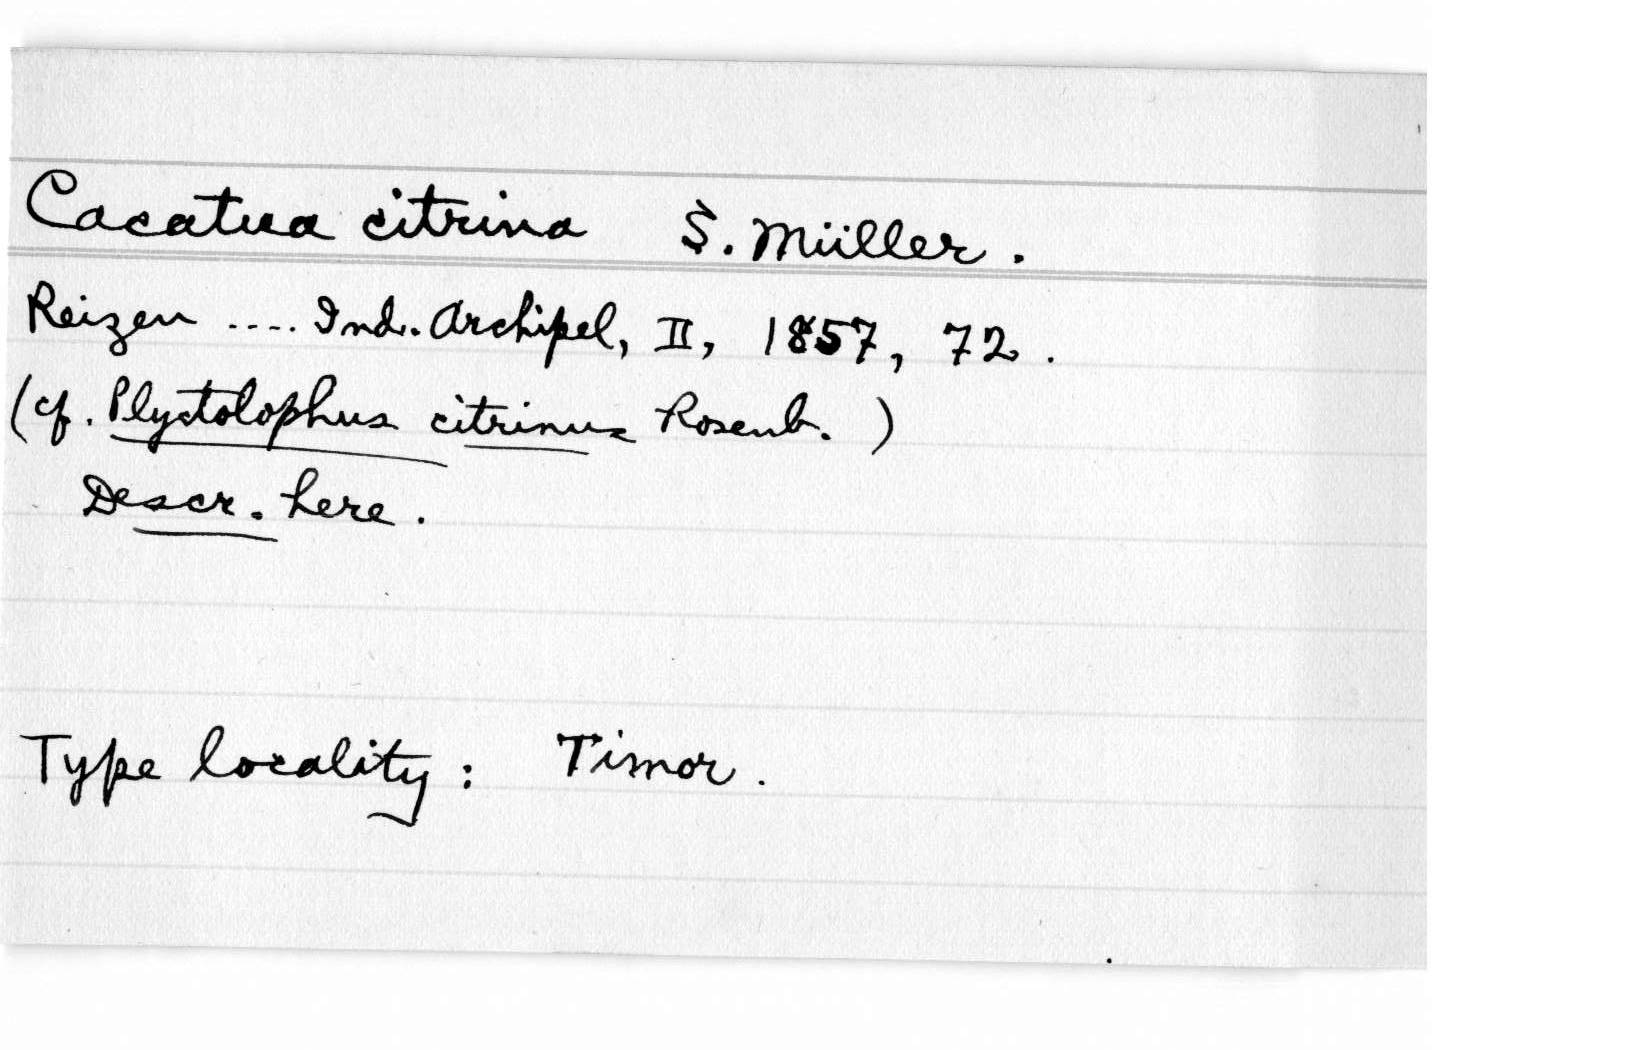 Cacatua citrina S. Müller.
Reizen .... Ind. Archipel, II, 1857, 72.
(cf. Plyctolophus citrinus Rosenb.)
Descr. here.
Type locality: Timor.